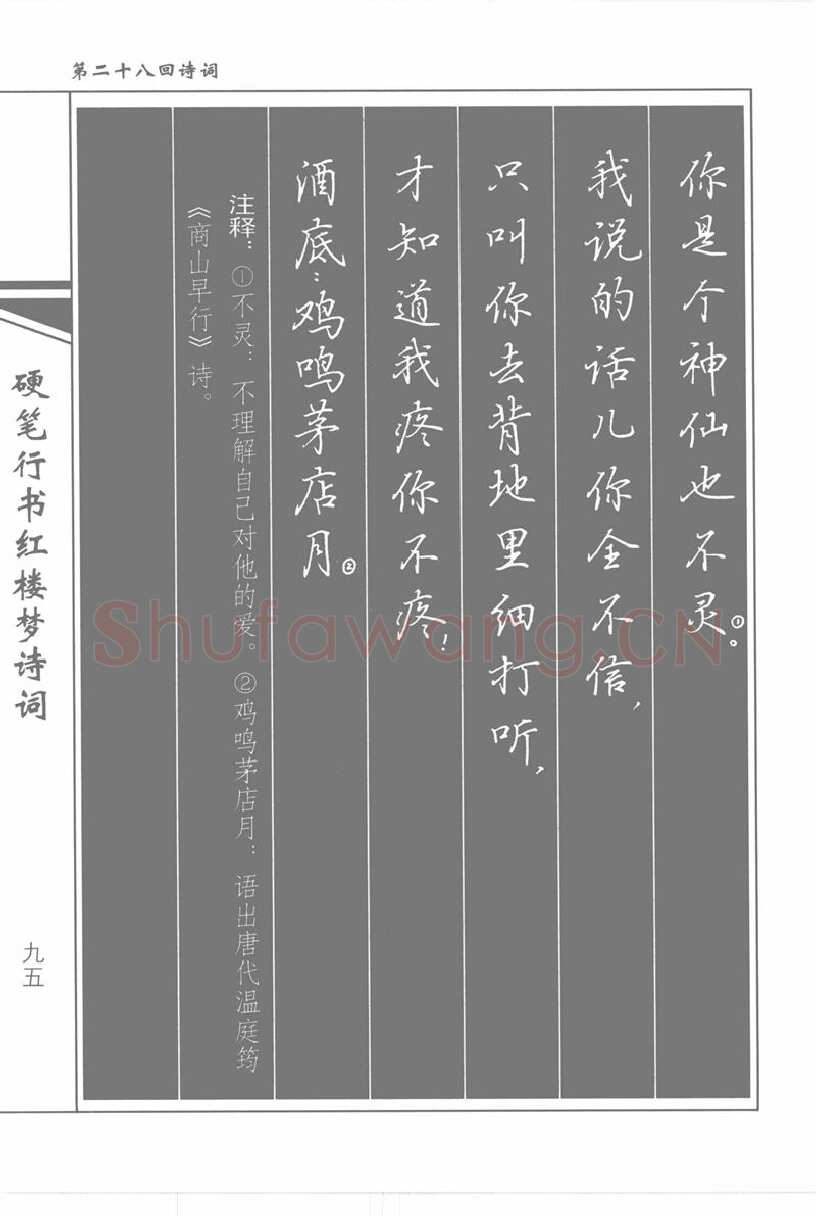 第二十八回诗词
你是个神仙也不灵①。
我说的话儿你全不信，
只叫你去背地里细打听，
才知道我疼你不疼！
酒底：鸡鸣茅店月②
注释：①不灵：不理解自己对他的爱。②鸡鸣茅店月：语出唐代温庭筠
《商山早行》诗。
硬笔行书红楼梦诗词
九五
Shufawang.CN